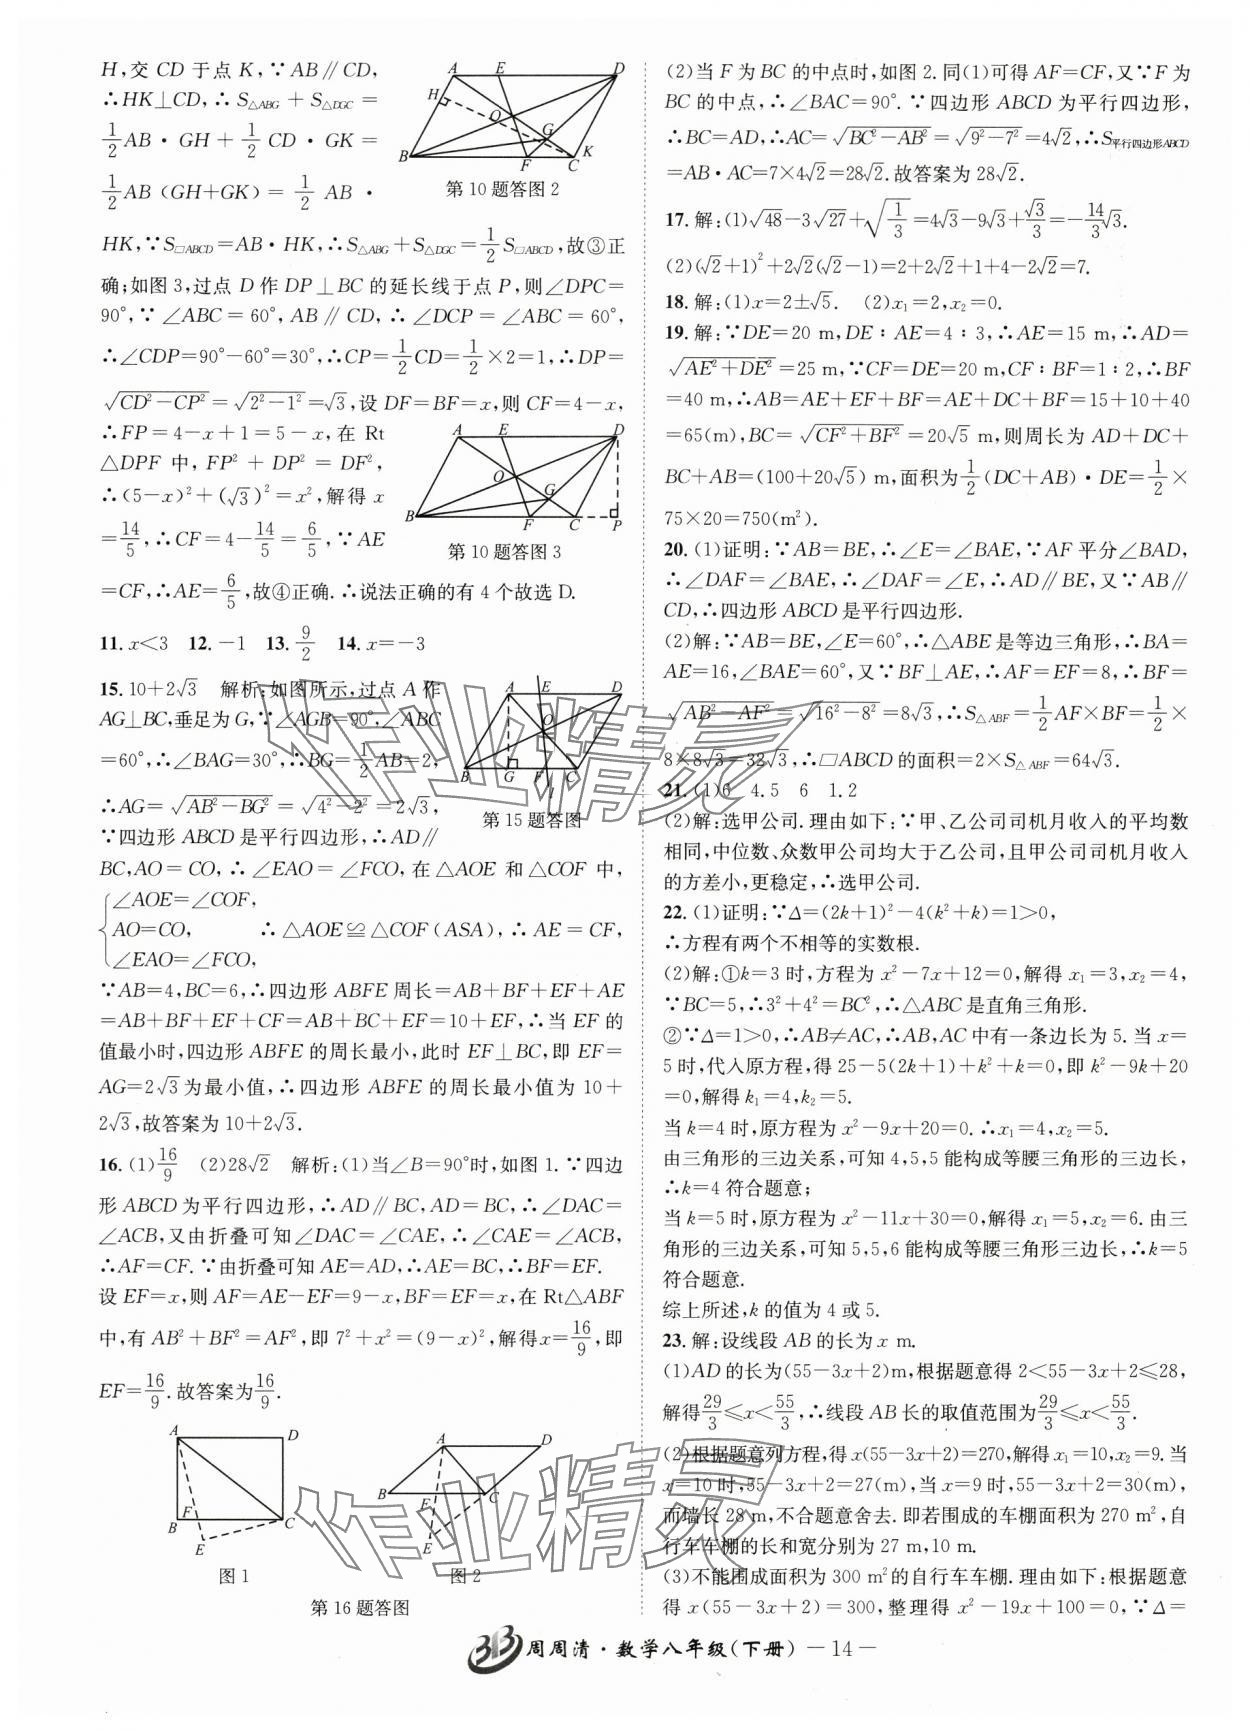 H,交 CD 于点 K,∵AB∥CD,
∴HK⊥CD,∴S△ABG+S△DGC=
1/2 AB·GH+1/2 CD·GK=
1/2 AB(GH+GK)=1/2 AB·
第10题答图2
HK,∵S▱ABCD=AB·HK,∴S△ABG+S△DGC=1/2 S▱ABCD,故③正
确;如图3,过点 D 作 DP⊥BC 的延长线于点 P,则∠DPC=
90°,∵∠ABC=60°,AB∥CD,∴∠DCP=∠ABC=60°,
∴∠CDP=90°-60°=30°,∴CP=1/2 CD=1/2×2=1,∴DP=
√(CD²-CP²)=√(2²-1²)=√3,设 DF=BF=x,则 CF=4-x,
∴FP=4-x+1=5-x,在 Rt
△DPF 中,FP²+DP²=DF²,
∴(5-x)²+(√3)²=x²,解得 x
=14/5,∴CF=4-14/5=6/5,∵AE
第10题答图3
=CF,∴AE=6/5,故④正确.∴说法正确的有4个故选D.
11. x<3 12. -1 13. 9/2 14. x=-3
15. 10+2√3 解析:如图所示,过点 A 作
AG⊥BC,垂足为 G,∵∠AGB=90°,∠ABC
=60°,∴∠BAG=30°,∴BG=1/2 AB=2,
∴AG=√(AB²-BG²)=√(4²-2²)=2√3,
第15题答图
∵四边形 ABCD 是平行四边形,∴AD∥
BC,AO=CO,∴∠EAO=∠FCO,在△AOE 和△COF 中,
{∠AOE=∠COF,
AO=CO, ∴△AOE≌△COF(ASA),∴AE=CF,
∠EAO=∠FCO,
∵AB=4,BC=6,∴四边形 ABFE 周长=AB+BF+EF+AE
=AB+BF+EF+CF=AB+BC+EF=10+EF,∴当 EF 的
值最小时,四边形 ABFE 的周长最小,此时 EF⊥BC,即 EF=
AG=2√3为最小值,∴四边形 ABFE 的周长最小值为10+
2√3,故答案为10+2√3.
16. (1)16/9 (2)28√2 解析:(1)当∠B=90°时,如图1.∵四边
形 ABCD 为平行四边形,∴AD∥BC,AD=BC,∴∠DAC=
∠ACB,又由折叠可知∠DAC=∠CAE,∴∠CAE=∠ACB,
∴AF=CF.∵由折叠可知 AE=AD,∴AE=BC,∴BF=EF.
设 EF=x,则 AF=AE-EF=9-x,BF=EF=x,在 Rt△ABF
中,有 AB²+BF²=AF²,即 7²+x²=(9-x)²,解得x=16/9,即
EF=16/9.故答案为16/9.
图1 图2
第16题答图
(2)当 F 为 BC 的中点时,如图2.同(1)可得 AF=CF,又∵F 为
BC 的中点,∴∠BAC=90°.∵四边形 ABCD 为平行四边形,
∴BC=AD,∴AC=√(BC²-AB²)=√(9²-7²)=4√2,∴S平行四边形ABCD
=AB·AC=7×4√2=28√2.故答案为28√2.
17. 解:(1)√48-3√27+√(1/3)=4√3-9√3+√3/3=-14/3√3.
(2)(√2+1)²+2√2(√2-1)=2+2√2+1+4-2√2=7.
18. 解:(1)x=2±√5. (2)x₁=2,x₂=0.
19. 解:∵DE=20 m,DE∶AE=4∶3,∴AE=15 m,∴AD=
√(AE²+DE²)=25 m,∵CF=DE=20 m,CF∶BF=1∶2,∴BF
=40 m,∴AB=AE+EF+BF=AE+DC+BF=15+10+40
=65(m),BC=√(CF²+BF²)=20√5 m,则周长为 AD+DC+
BC+AB=(100+20√5) m,面积为1/2(DC+AB)·DE=1/2×
75×20=750(m²).
20. (1)证明:∵AB=BE,∴∠E=∠BAE,∵AF 平分∠BAD,
∴∠DAF=∠BAE,∴∠DAF=∠E,∴AD∥BE,又∵AB∥
CD,∴四边形 ABCD 是平行四边形.
(2)解:∵AB=BE,∠E=60°,∴△ABE 是等边三角形,∴BA=
AE=16,∠BAE=60°,又∵BF⊥AE,∴AF=EF=8,∴BF=
√(AB²-AF²)=√(16²-8²)=8√3,∴S△ABF=1/2 AF×BF=1/2×
8×8√3=32√3,∴▱ABCD 的面积=2×S△ABF=64√3.
21. (1)6 4.5 6 1.2
(2)解:选甲公司.理由如下:∵甲、乙公司司机月收入的平均数
相同,中位数、众数甲公司均大于乙公司,且甲公司司机月收入
的方差小,更稳定,∴选甲公司.
22. (1)证明:∵Δ=(2k+1)²-4(k²+k)=1>0,
∴方程有两个不相等的实数根.
(2)解:①k=3时,方程为 x²-7x+12=0,解得 x₁=3,x₂=4,
∵BC=5,∴3²+4²=BC²,∴△ABC 是直角三角形.
②∵Δ=1>0,∴AB≠AC,∴AB,AC 中有一条边长为5.当 x=
5时,代入原方程,得 25-5(2k+1)+k²+k=0,即 k²-9k+20
=0,解得 k₁=4,k₂=5.
当 k=4时,原方程为 x²-9x+20=0.∴x₁=4,x₂=5.
由三角形的三边关系,可知4,5,5能构成等腰三角形的三边长,
∴k=4符合题意;
当 k=5时,原方程为 x²-11x+30=0,解得 x₁=5,x₂=6.由三
角形的三边关系,可知5,5,6能构成等腰三角形三边长,∴k=5
符合题意.
综上所述,k 的值为4或5.
23. 解:设线段 AB 的长为 x m.
(1)AD 的长为(55-3x+2)m,根据题意得 2<55-3x+2≤28,
解得29/3≤x<55/3,∴线段 AB 长的取值范围为29/3≤x<55/3.
(2)根据题意列方程,得 x(55-3x+2)=270,解得 x₁=10,x₂=9.当
x=10时,55-3x+2=27(m),当 x=9时,55-3x+2=30(m),
而墙长28 m,不合题意舍去.即若围成的车棚面积为270 m²,自
行车车棚的长和宽分别为27 m,10 m.
(3)不能围成面积为300 m²的自行车车棚.理由如下:根据题意
得 x(55-3x+2)=300,整理得 x²-19x+100=0,∵Δ=
周周清·数学八年级(下册) —14—
作业精灵
作业精灵